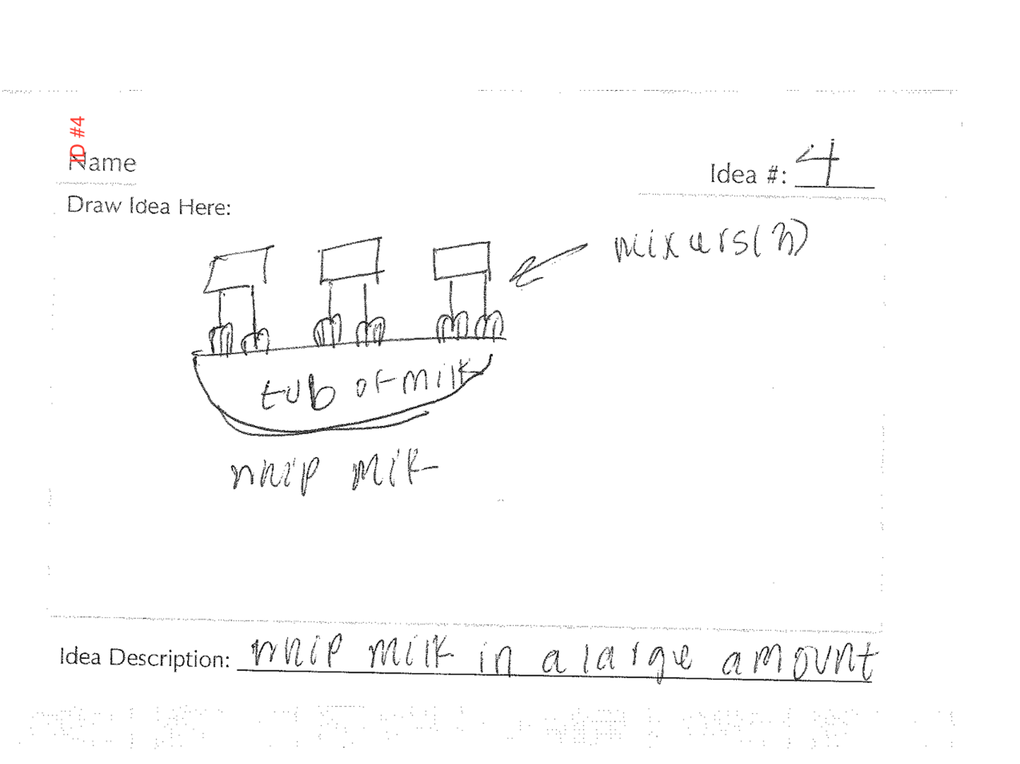 ID #4
Name
Idea #: 4
Draw Idea Here:
mixers(3)
tub of milk
whip milk
Idea Description: whip milk in a large amount